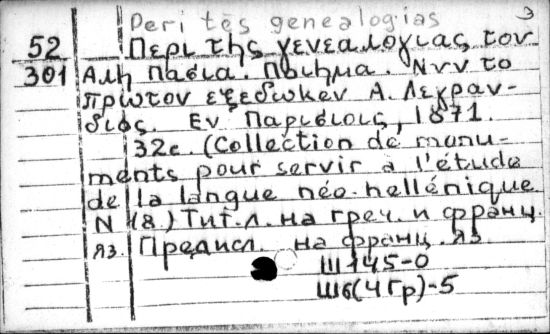 Peri tēs genealogias 3
52 Περι της γενεαλογιας του
301 Αλη Πασια. Ποιημα. Νυν το
πρωτον εξεδωκεν Α. Λεγραν-
διος. Εν Παρισιοις, 1871.
32c. (Collection de monu-
ments pour servir a l'étude
de la langue néo-hellénique
N (8.) Тит.л. на греч. и франц.
яз. Предисл. на франц. яз.
Ш145-0
Ш6(4Гр)-5